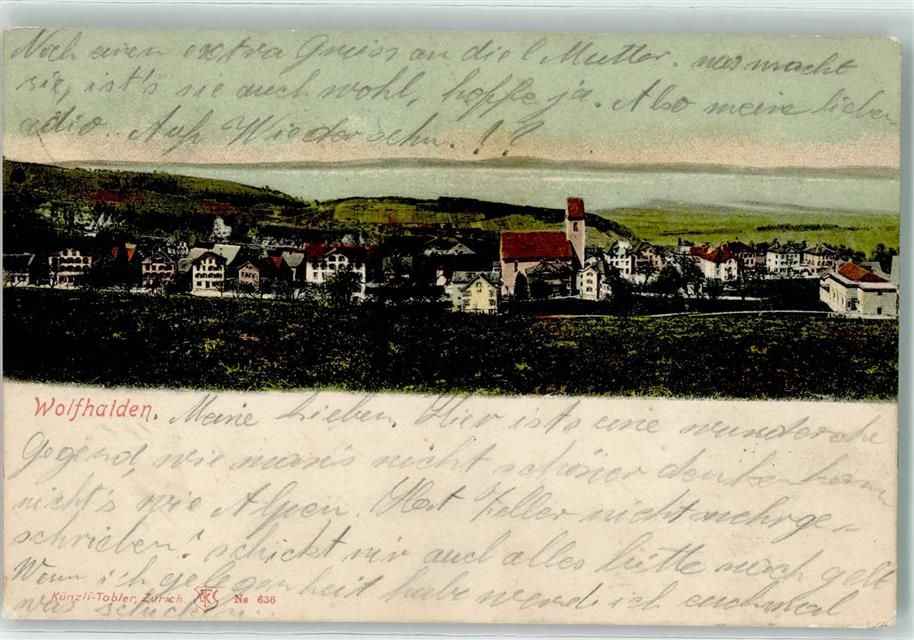 Noch einen extra Gruss an die l Mutter. was macht
sie, ist's sie auch wohl, hoffe ja. Also meine lieben
adio. Auf Wiedersehn.!?
Wolfhalden. Meine Lieben, Hier ist eine wundersche
Gegend, wie man's nicht schöner denken kann
nicht's wie Alpen. Hat Keller nicht mehr ge-
schrieben? schickt mir auch alles bitte nach gelt
Wenn ich gelegenheit habe werde ich euch mal
was schicken.
Künzli-Tobler, Zürich. No 636